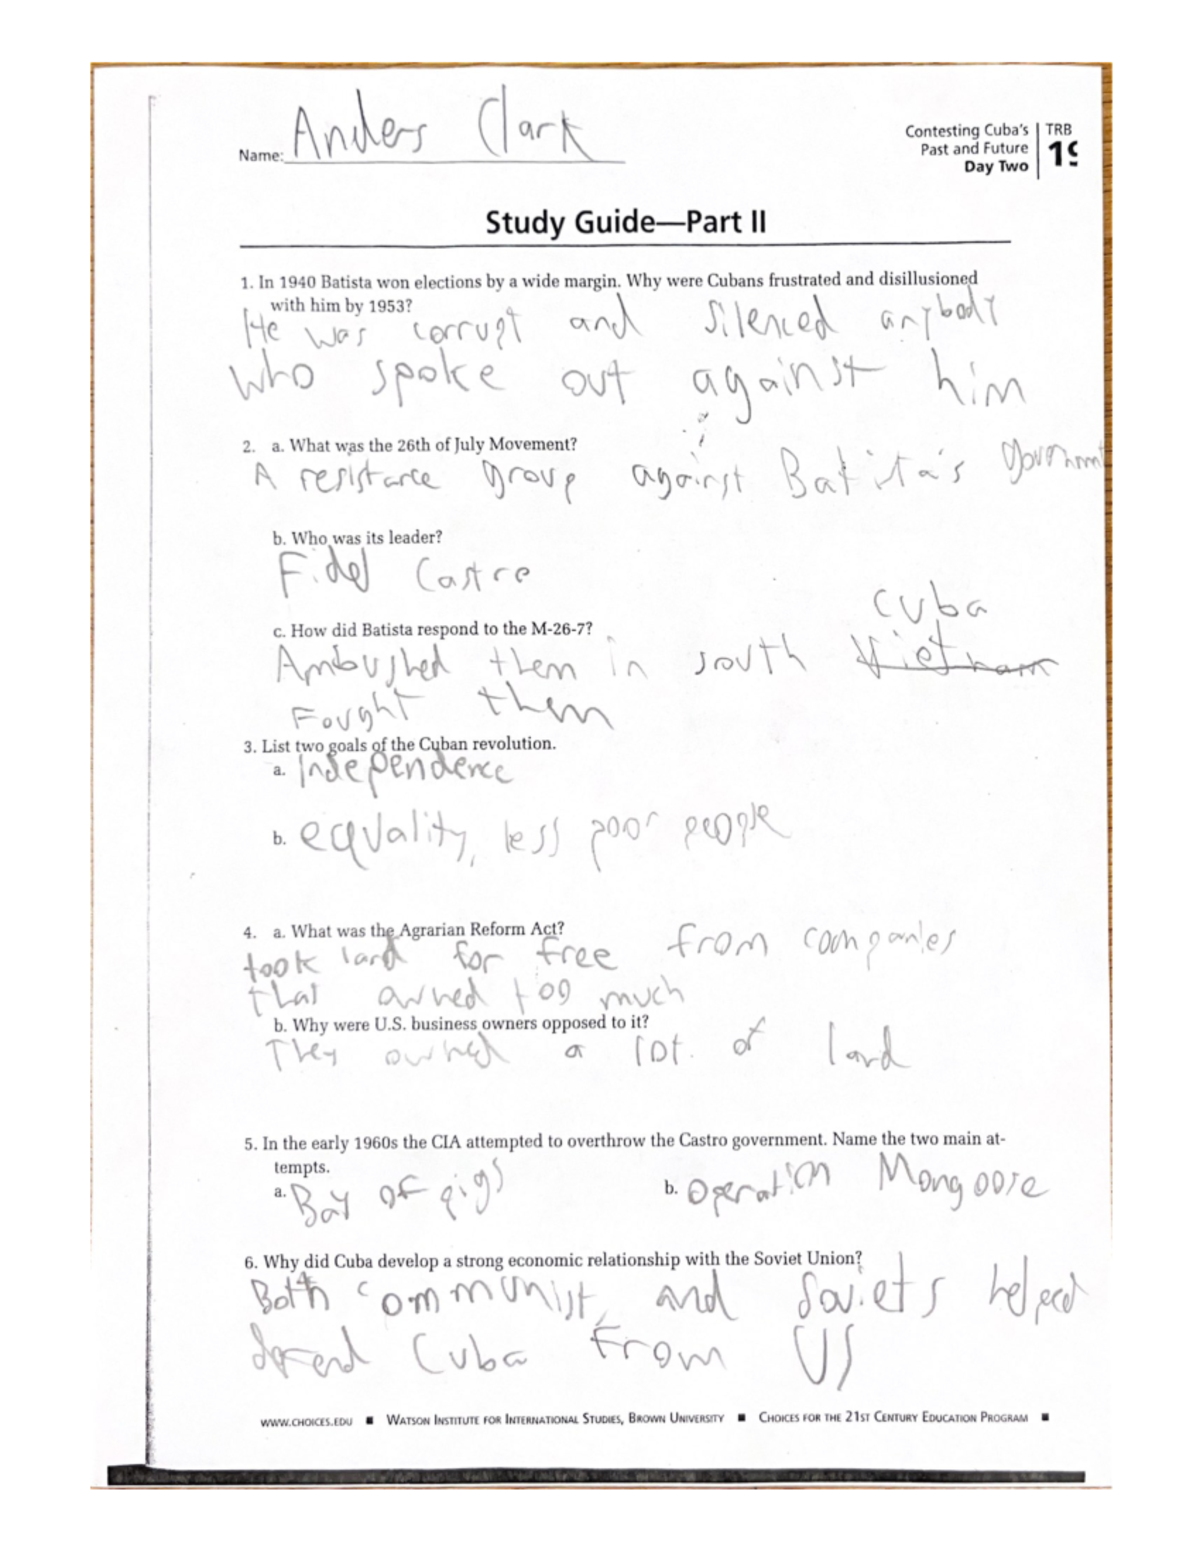 Name: Anders Clark
Contesting Cuba's
Past and Future
Day Two
TRB
19
Study Guide—Part II
1. In 1940 Batista won elections by a wide margin. Why were Cubans frustrated and disillusioned
with him by 1953?
He was corrupt and silenced anybody
who spoke out against him
2. a. What was the 26th of July Movement?
A resistance group against Batista's government
b. Who was its leader?
Fidel Castro
Cuba
c. How did Batista respond to the M-26-7?
Ambushed them in south Vietnam
Fought them
3. List two goals of the Cuban revolution.
a. Independence
b. equality, less poor people
4. a. What was the Agrarian Reform Act?
took land for free from companies
that owned too much
b. Why were U.S. business owners opposed to it?
They owned a lot of land
5. In the early 1960s the CIA attempted to overthrow the Castro government. Name the two main at-
tempts.
a. Bay of pigs b. Operation Mongoose
6. Why did Cuba develop a strong economic relationship with the Soviet Union?
Both communist, and Soviets helped
defend Cuba from US
WWW.CHOICES.EDU ■ WATSON INSTITUTE FOR INTERNATIONAL STUDIES, BROWN UNIVERSITY ■ CHOICES FOR THE 21ST CENTURY EDUCATION PROGRAM ■